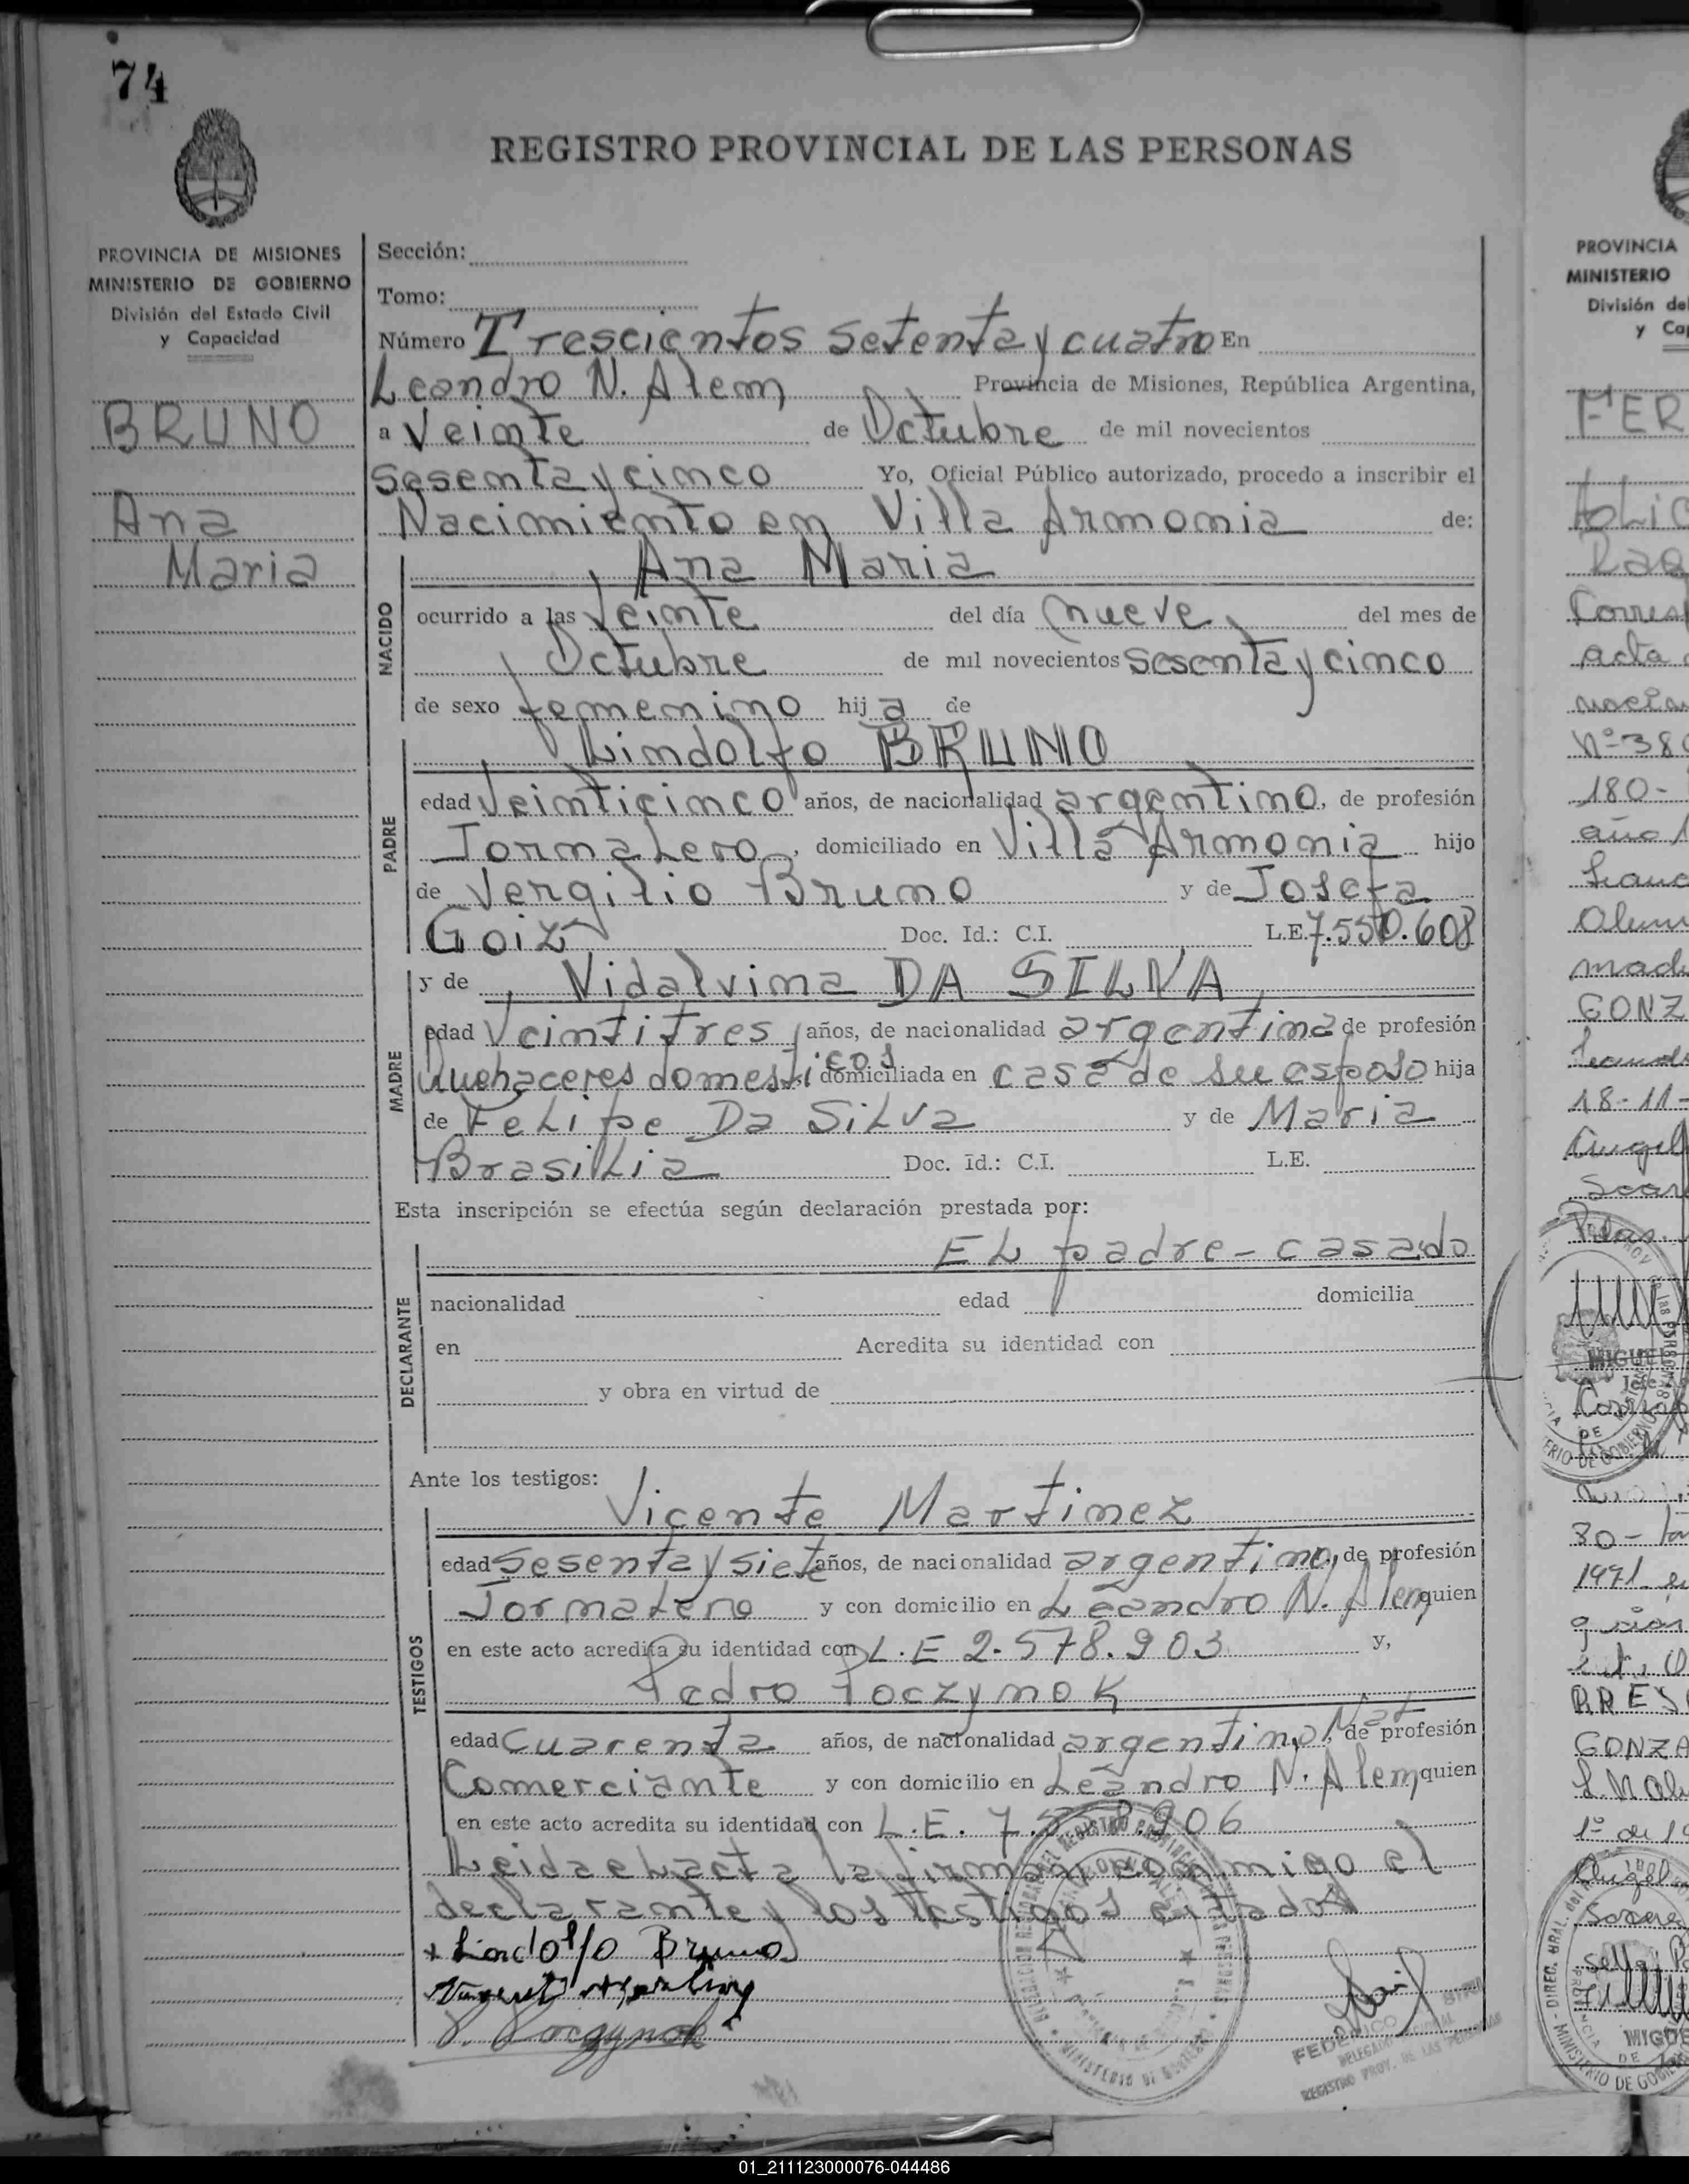 74
REGISTRO PROVINCIAL DE LAS PERSONAS
PROVINCIA DE MISIONES
MINISTERIO DE GOBIERNO
División del Estado Civil
y Capacidad
BRUNO
Ana
Maria
Sección:
Tomo:
Número Trescientos setenta y cuatro En
Leandro N. Alem Provincia de Misiones, República Argentina,
a Veinte de Octubre de mil novecientos
sesenta y cinco Yo, Oficial Público autorizado, procedo a inscribir el
Nacimiento en Villa Armonia de:
NACIDO
Ana Maria
ocurrido a las Veinte del día nueve del mes de
Octubre de mil novecientos sesenta y cinco
de sexo femenino hija de
PADRE
Lindolfo BRUNO
edad Veinticinco años, de nacionalidad argentino, de profesión
Jornalero, domiciliado en Villa Armonia hijo
de Vergilio Bruno y de Josefa
Goiz Doc. Id.: C.I. L.E. 7.550.608
MADRE
y de Vidalvina DA SILVA
edad Veintitres años, de nacionalidad argentina de profesión
Quehaceres domesticos domiciliada en casa de su esposo hija
de Felipe Da Silva y de Maria
Brasilia Doc. Id.: C.I. L.E.
Esta inscripción se efectúa según declaración prestada por:
DECLARANTE
El padre - casado
nacionalidad edad domicilia
en Acredita su identidad con
y obra en virtud de
Ante los testigos:
TESTIGOS
Vicente Martinez
edad Sesenta y siete años, de nacionalidad argentino, de profesión
Jornalero y con domicilio en Leandro N. Alem quien
en este acto acredita su identidad con L.E 2.578.903 y,
Pedro Poczynok
edad Cuarenta años, de nacionalidad argentino Nat. de profesión
Comerciante y con domicilio en Leandro N. Alem quien
en este acto acredita su identidad con L.E. 7.558.906
Leida el acta la firman conmigo el
declarante y los testigos citados
+ Lindolfo Bruno
P. Poczynok
FEDERICO
DELEGADO
REGISTRO PROV. DE LAS PERSONAS
MINISTERIO DE GOBIERNO
PROVINCIA
MINISTERIO
División del
y Cap
FER
acta
Nº 380
180-
año 1
GONZ
18-11-
Angel
MIGUEL
Jefe
DE
80 -
1971
GONZA
Angel
MIGUE
DE
01_211123000076-044486